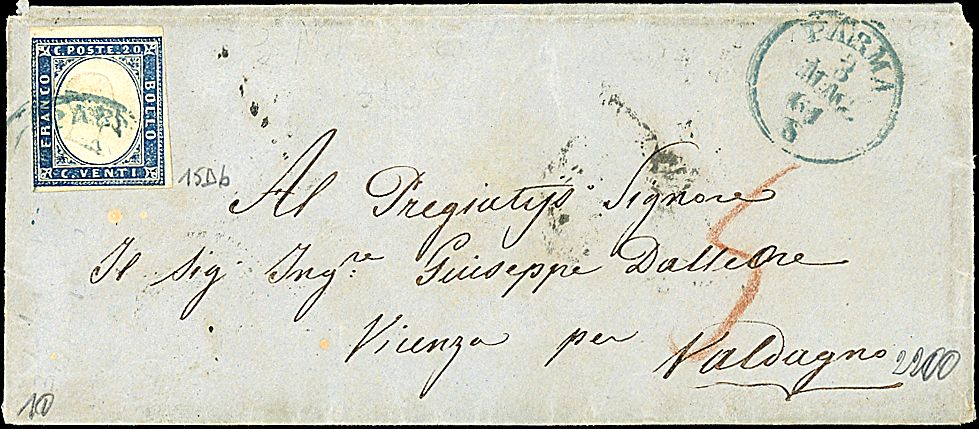 C. POSTE. 20
FRANCO
BOLLO
C. VENTI.
PARMA
3
61
15Db
Al Pregiatys Signore
Il Sig Ingre Guiseppe Dalleore
Vicenza per Valdagno
5
2200
10